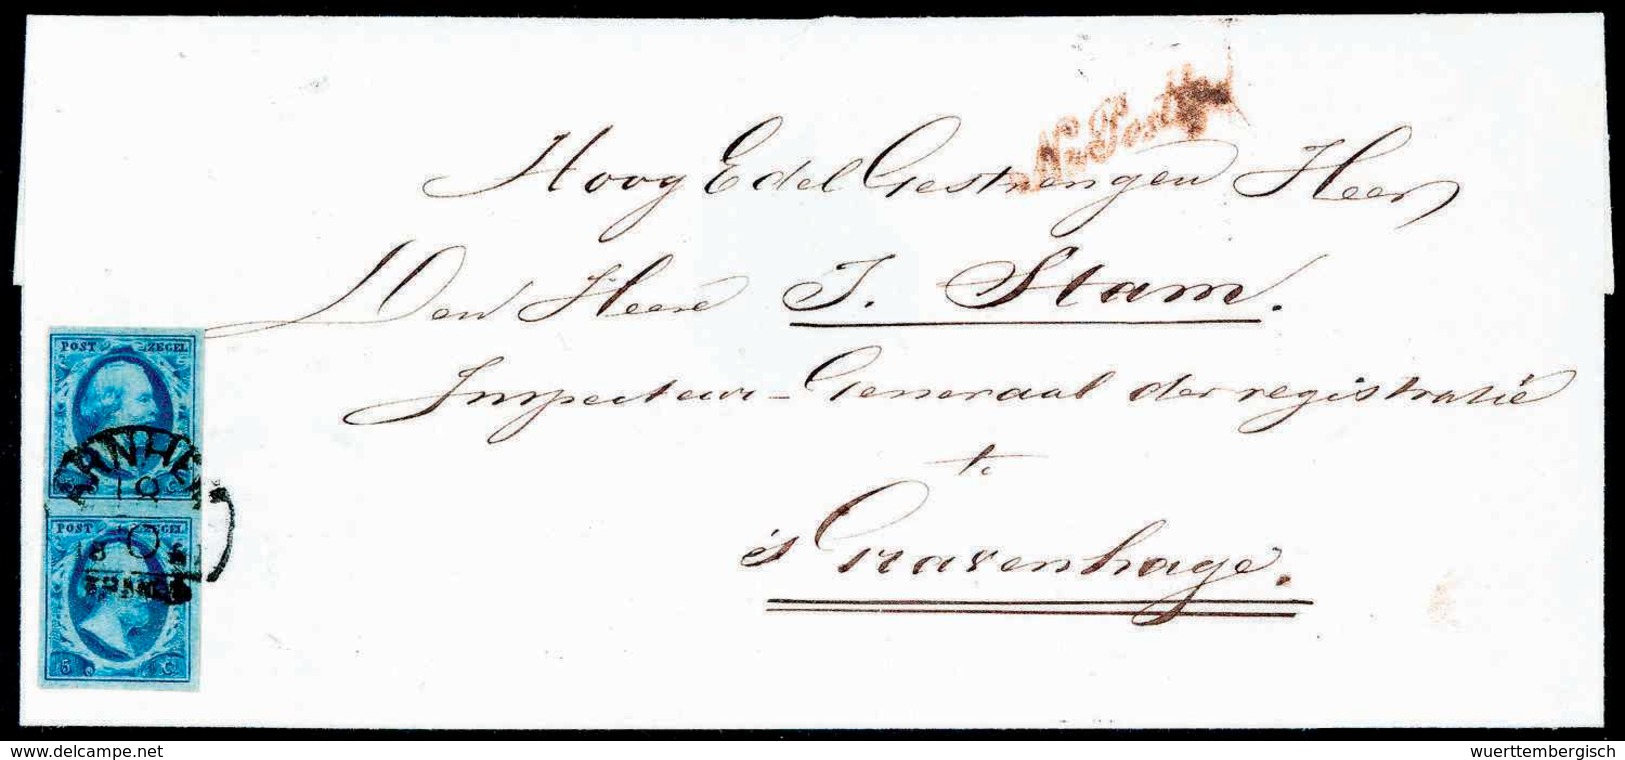 Na Posttijd
Hoog Edel Gestrengen Heer
Den Heere J. Stam.
Inspecteur-Generaal der registratie
te
's Gravenhage.
POST ZEGEL
5 C
ARNHEM
18
POST ZEGEL
18
FRANCO
5 C
www.delcampe.net
wuerttembergisch